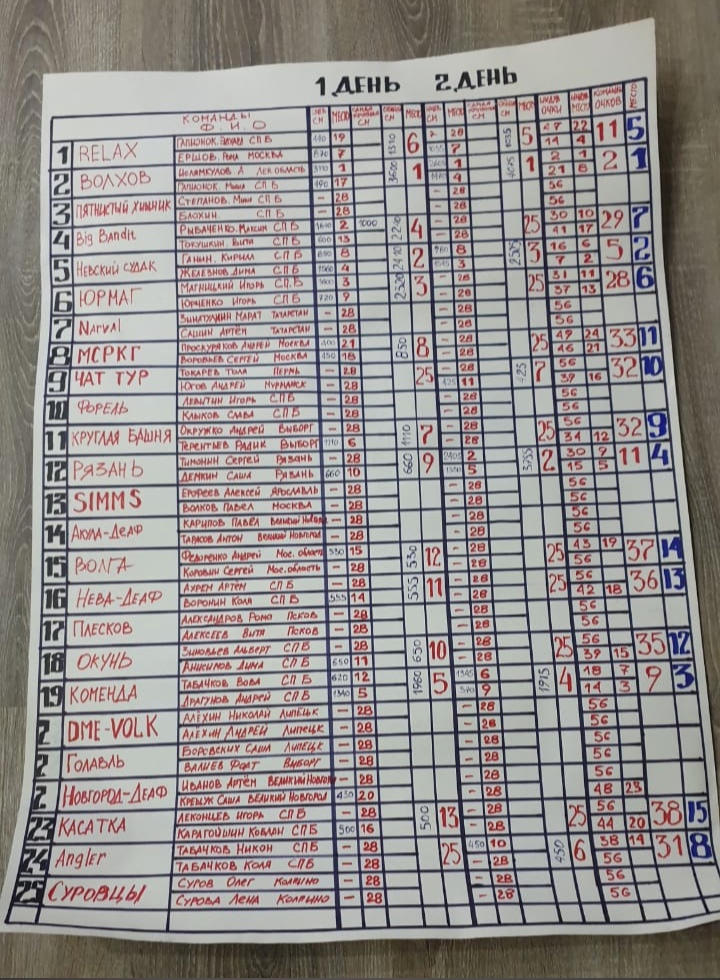 1 ДЕНЬ 2 ДЕНЬ
КОМАНДЫ Ф.И.О МЕСТО МЕСТО МЕСТО
1 RELAX СПБ 19 28 27 22
ЕРШОВ. Рома МОСКВА 7 6 7 5 14 4 11 5
2 ВОЛХОВ 1 1 2 1
СПБ 17 1 4 1 21 8 2 1
3 ПЯТНИСТЫЙ ХИЩНИК СТЕПАНОВ. СПБ – 28 – 28 56
БЛОХИН. СПБ – 28 – 28 56
4 Big Bandit РЫБАЧЕНКО. Максим СПБ 2 – 28 30 10
ТОКУШКИН. Витя СПБ 13 4 – 28 25 41 17 29 7
5 НЕВСКИЙ СУДАК ГАНИН. Кирилл СПБ 8 8 16 6
ЖЕЛЕЗНОВ Дима СПБ 4 2410 2 3 3 7 2 5 2
6 ЮРМАГ МАГНИЦКИЙ Игорь СПБ 3 – 28 31 11
ЮРЧЕНКО Игорь СПБ 720 9 2320 3 – 28 25 37 13 28 6
7 Narval МАРАТ ТАТАРСТАН – 28 – 28 56
САШИН АРТЁМ ТАТАРСТАН – 28 – 28 56
8 МСРКГ ПРОСКУРЯКОВ АНДРЕЙ МОСКВА 400 21 – 28 49 24
ВОРОБЬЕВ СЕРГЕЙ МОСКВА 450 18 850 8 – 28 25 46 21 33 11
9 ЧАТ ТУР ТОКАРЕВ ТОЛЯ ПЕРМЬ – 28 – 28 56
ЮГОВ АНДРЕЙ МУРМАНСК – 28 25 425 11 425 7 39 16 32 10
10 ФОРЕЛЬ ЛЕВИТИН ИГОРЬ СПБ – 28 – 28 56
КЛЫКОВ САВА СПБ – 28 – 28 56
11 КРУГЛАЯ БАШНЯ ОКРУЖКО АНДРЕЙ ВЫБОРГ – 28 – 28 56
ТЕРЕНТЬЕВ РАДИК ВЫБОРГ 1110 6 1110 7 – 28 25 34 12 32 9
12 РЯЗАНЬ ТИМОНИН СЕРГЕЙ РЯЗАНЬ – 28 2 30 9
ДЕМКИН САША РЯЗАНЬ 660 10 660 9 5 2 15 5 11 4
13 SIMMS ЕРОФЕЕВ АЛЕКСЕЙ ЯРОСЛАВЛЬ – 28 – 28 56
ВОЛКОВ ПАВЕЛ МОСКВА – 28 – 28 56
14 АЮЛА-ДЕАФ КАРИПОВ ПАВЕЛ ВЕЛИКИЙ – 28 – 28 56
ТАРАСОВ АНТОН ВЕЛИКИЙ НОВГОРОД – 28 – 28 56
15 ВОЛГА ФЕДОРЕНКО АНДРЕЙ Мос. область 530 15 – 28 43 19
КОРОВИН СЕРГЕЙ МОС.ОБЛАСТЬ – 28 530 12 – 28 25 56 37 14
16 НЕВА-ДЕАФ АУРЕН АРТЁМ СПБ – 28 – 28 56
ВОРОНИН КОЛЯ СПБ 555 14 555 11 – 28 25 42 18 36 13
17 ПЛЕСКОВ АЛЕКСАНДРОВ РОМА ПСКОВ – 28 – 28 56
АЛЕКСЕЕВ ВИТЯ ПСКОВ – 28 – 28 56
18 ОКУНЬ ЗИНОВЬЕВ АЛЬБЕРТ СПБ – 28 – 28 56
АНИСИМОВ ДИМА СПБ 650 11 650 10 – 28 25 39 15 35 12
19 КОМЕНДА ТАБАЧКОВ ВОВА СПБ 620 12 1345 6 18 7
ДРАГУНОВ АНДРЕЙ СПБ 1340 5 1960 5 570 9 1915 4 14 3 9 3
2 DME-VOLK АЛЁХИН НИКОЛАЙ ЛИПЕЦК – 28 – 28 56
АЛЁХИН АНДРЕЙ ЛИПЕЦК – 28 – 28 56
2 ГОЛАВЛЬ БОРОВСКИХ САША ЛИПЕЦК – 28 – 28 56
ВАЛИЕВ ФОАТ ВЫБОРГ – 28 – 28 56
2 НОВГОРОД-ДЕАФ ИВАНОВ АРТЁМ ВЕЛИКИЙ НОВГОРО – 28 – 28 56
КРЕМУЖ САША ВЕЛИКИЙ НОВГОРОД 430 20 – 28 48 23
23 КАСАТКА ЛЕКОНЦЕВ ИГОРЬ СПБ – 28 – 28 56
КАРАГОЙШИН КОБЛАН СПБ 500 16 500 13 – 28 25 44 20 38 15
24 Angler ТАБАЧКОВ НИКОН СПБ – 28 450 10 38 14
ТАБАЧКОВ КОЛЯ СПБ – 28 25 – 28 450 6 56 31 8
25 СУРОВЦЫ СУРОВ ОЛЕГ КОЛПИНО – 28 – 28 56
СУРОВА ЛЕНА КОЛПИНО – 28 – 28 56